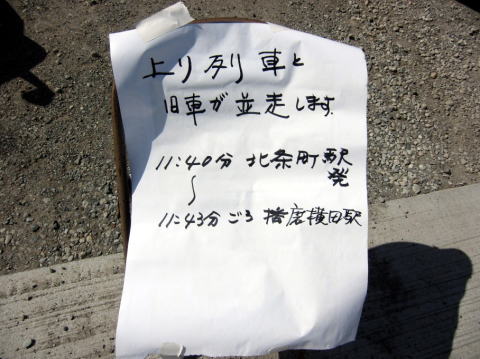 上り列車と
旧車が並走します.
11:40分 北条町駅発
〜
11:43分ごろ 播磨横田駅